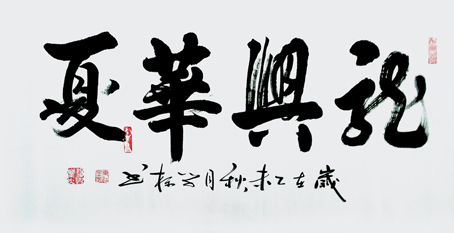 龍興華夏
歲在乙未秋月